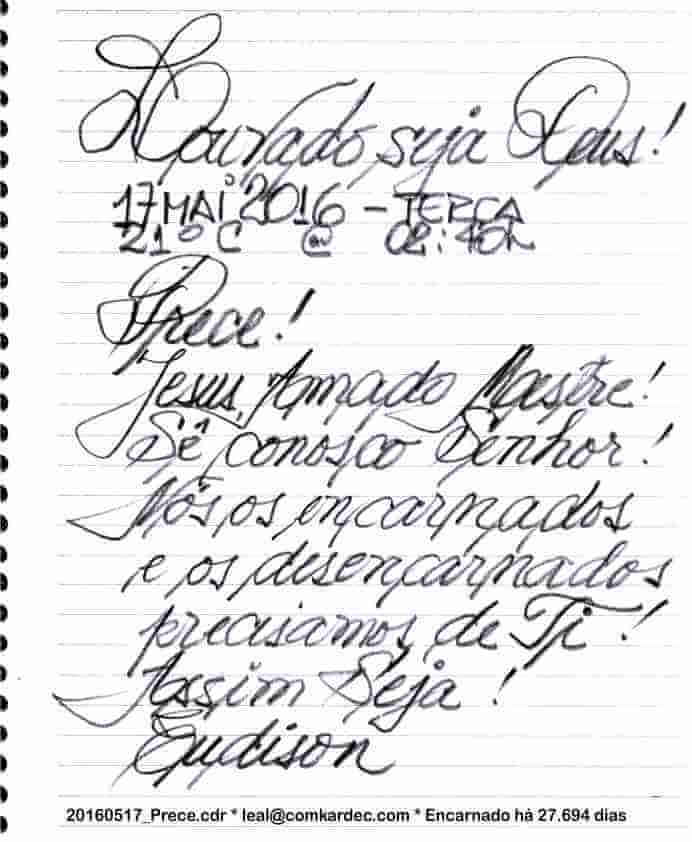 Louvado seja Deus!
17 MAIº 2016 - TERÇA
21º C @ 02:40h
Prece!
Jesus, Amado Mestre!
Sê conosco Senhor!
Nós os encarnados
e os desencarnados
precisamos de Ti!
Assim Seja!
Eudison
20160517_Prece.cdr * leal@comkardec.com * Encarnado há 27.694 dias